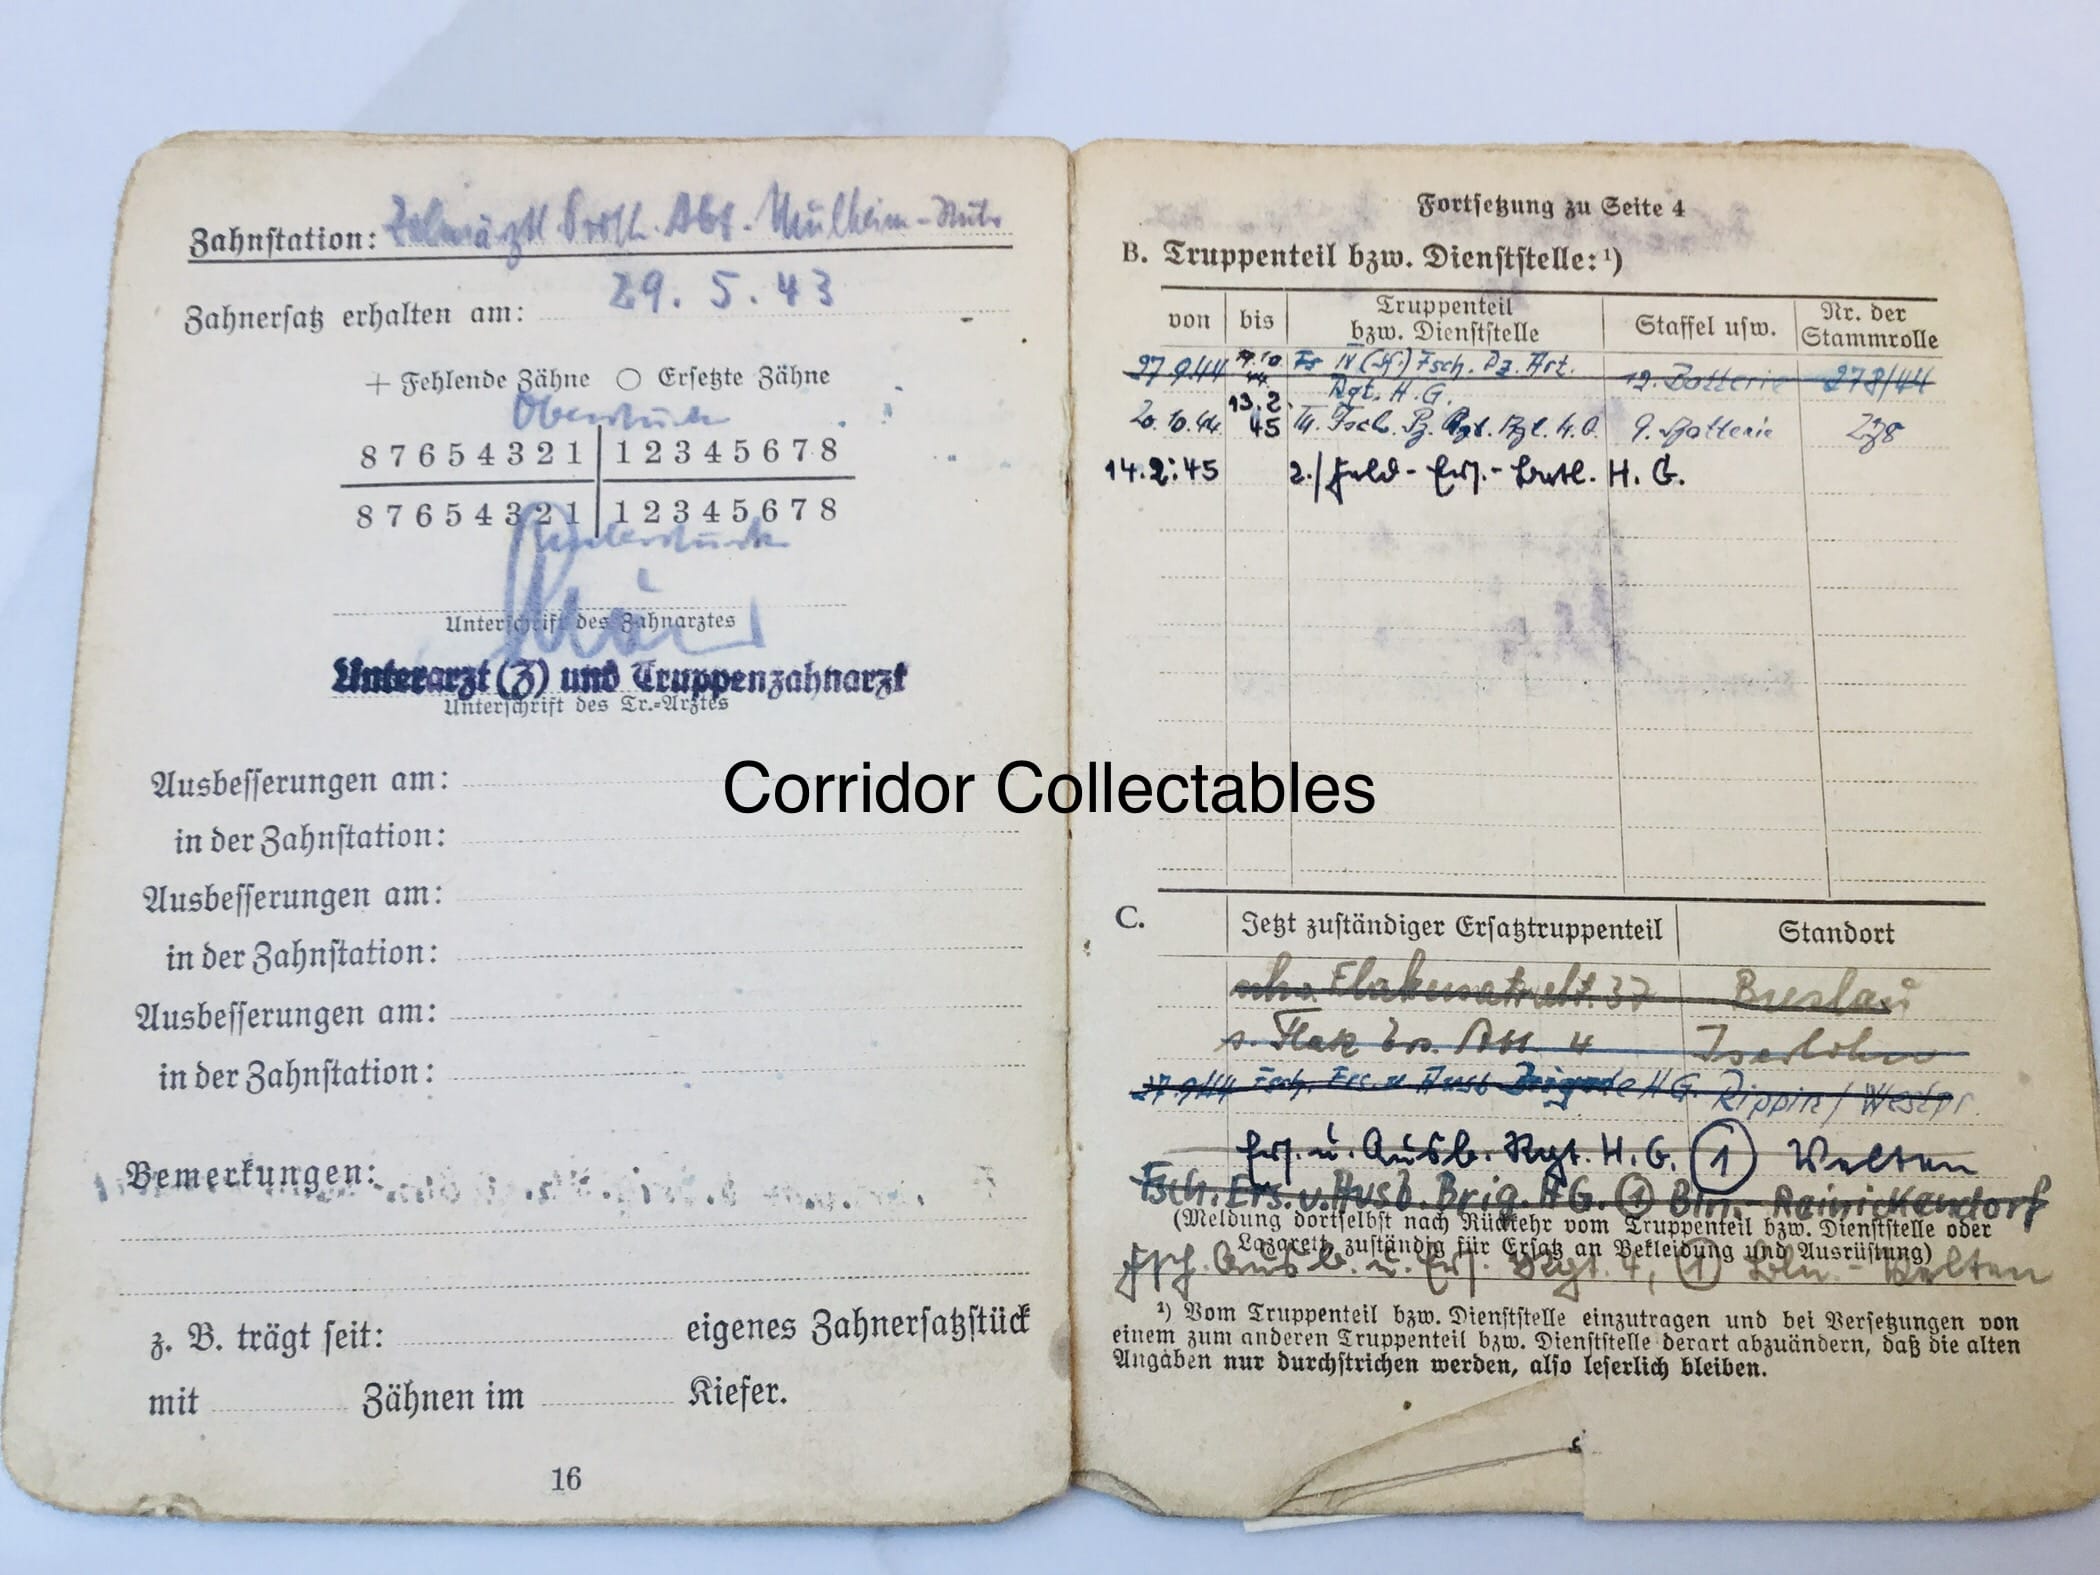 Zahnstation: Abt. Mülheim-Ruhr
Zahnersatz erhalten am: 29.5.43
+ Fehlende Zähne ○ Ersetzte Zähne
8 7 6 5 4 3 2 1 | 1 2 3 4 5 6 7 8
8 7 6 5 4 3 2 1 | 1 2 3 4 5 6 7 8
Unterschrift des Zahnarztes
Unterarzt (Z) und Truppenzahnarzt
Unterschrift des Tr.-Arztes
Ausbesserungen am:
in der Zahnstation:
Ausbesserungen am:
in der Zahnstation:
Ausbesserungen am:
in der Zahnstation:
Bemerkungen:
z. B. trägt seit: eigenes Zahnersatzstück
mit Zähnen im Kiefer.
16
Corridor Collectables
Fortsetzung zu Seite 4
B. Truppenteil bzw. Dienststelle: ¹)
von bis Truppenteil bzw. Dienststelle Staffel usw. Nr. der Stammrolle
27.9.44 IV Fsch. Pz. Art. Rgt. H.G. 12. Batterie 278/44
20.10.44 13.2.45 Fsch. Pz. H.G. 9. Batterie 278
14.2.45 2./Feld-Ers.-Batl. H.G.
C. Jetzt zuständiger Ersatztruppenteil Standort
37 Breslau
s. Flak Ers. Abt. 4 Iserlohn
27.9.44 Fsch. Ers. u Ausb Brigade H G. Rippin/Westpr.
Ers. u. Ausb. Rgt. H.G. (1) Velten
Fsch. Ers. u. Ausb. Brig. HG. (1) Bln.-Reinickendorf
(Meldung dortselbst nach Rückkehr vom Truppenteil bzw. Dienststelle oder
Lazarett, zuständig für Ersatz an Bekleidung und Ausrüstung)
Fsch. Ausb. u. Ers. Rgt. (1) Bln.-Velten
¹) Vom Truppenteil bzw. Dienststelle einzutragen und bei Versetzungen von
einem zum anderen Truppenteil bzw. Dienststelle derart abzuändern, daß die alten
Angaben nur durchstrichen werden, also leserlich bleiben.